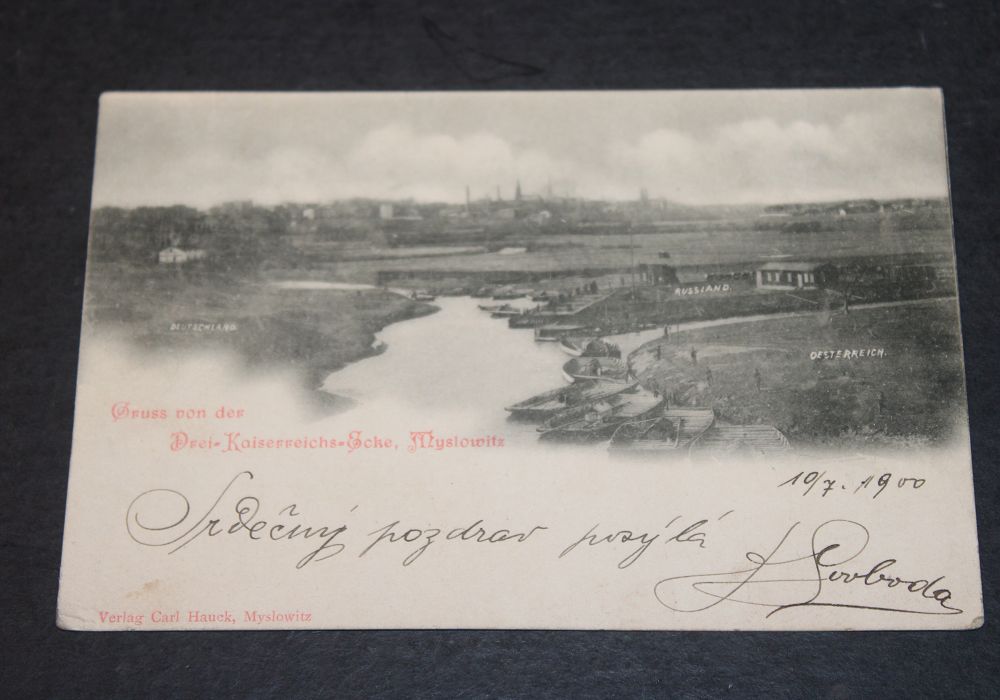 DEUTSCHLAND.
RUSSLAND.
OESTERREICH.
Gruss von der
Drei-Kaiserreichs-Ecke, Myslowitz
10/7. 1900
Srdečný pozdrav posýlá
Svoboda
Verlag Carl Hauck, Myslowitz